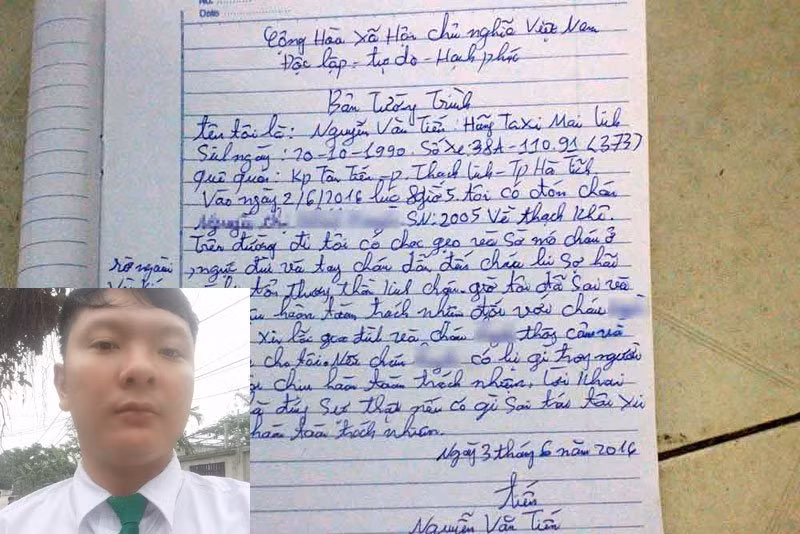 No.
Date
Cộng Hòa Xã Hội chủ nghĩa Việt Nam
Độc lập - tự do - Hạnh phúc
Bản Tường Trình
tên tôi là: Nguyễn Văn Tiến: Hãng Taxi Mai Linh
Sinh ngày: 20-10-1990. Số xe: 38A-110.91 (373)
quê quán: Kp Tân Tiến - p. Thạch Linh - Tp Hà Tĩnh
Vào ngày 2/6/2016 lúc 8giờ5. tôi có đón cháu
Nguyễn SN: 2005 Về thạch Khê.
trên đường đi tôi có chọc gẹo và Sờ mó cháu ở
ngực đùi và tay cháu dẫn đến cháu bị Sợ hãi
tổn thương thân thể giờ tôi đã Sai và
hoàn toàn trách nhiệm đối với cháu
xin lỗi gia đình và cháu thông cảm và
cho tôi. Nếu cháu có bị gì trong người
chịu hoàn toàn trách nhiệm, lời khai
đúng Sự thật nếu có gì Sai trái tôi xin
hoàn toàn trách nhiệm.
Ngày 3 tháng 6 năm 2016
tiến
Nguyễn Văn Tiến